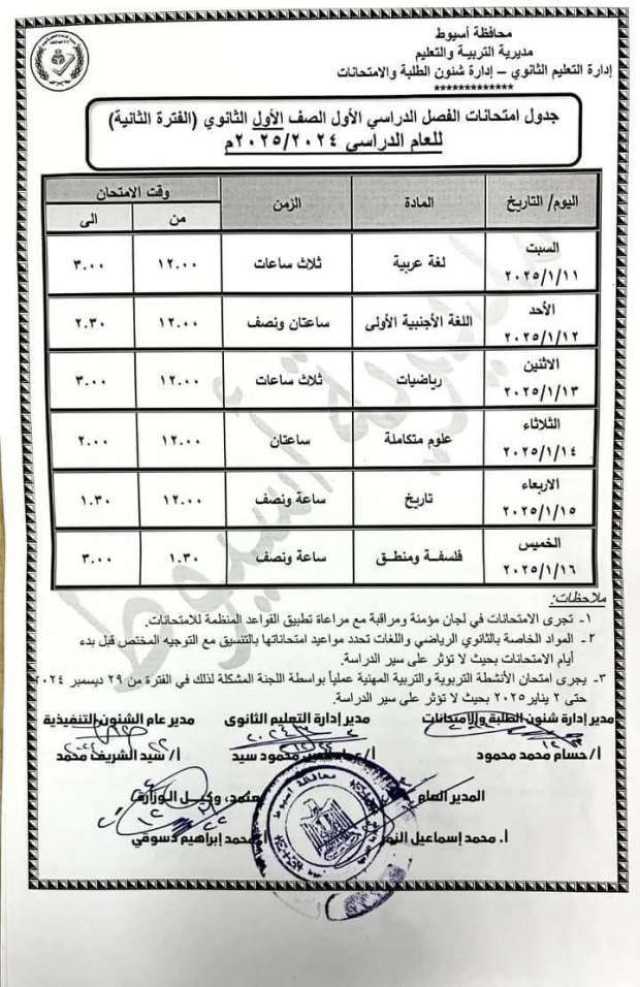 محافظة أسيوط
مديرية التربية والتعليم
إدارة التعليم الثانوي – إدارة شئون الطلبة والامتحانات
*************
جدول امتحانات الفصل الدراسي الأول الصف الأول الثانوي (الفترة الثانية)
للعام الدراسي ٢٠٢٥/٢٠٢٤م
اليوم/ التاريخ المادة الزمن وقت الامتحان
من الى
السبت ٢٠٢٥/١/١١ لغة عربية ثلاث ساعات ١٢.٠٠ ٣.٠٠
الأحد ٢٠٢٥/١/١٢ اللغة الأجنبية الأولى ساعتان ونصف ١٢.٠٠ ٢.٣٠
الاثنين ٢٠٢٥/١/١٣ رياضيات ثلاث ساعات ١٢.٠٠ ٣.٠٠
الثلاثاء ٢٠٢٥/١/١٤ علوم متكاملة ساعتان ١٢.٠٠ ٢.٠٠
الاربعاء ٢٠٢٥/١/١٥ تاريخ ساعة ونصف ١٢.٠٠ ١.٣٠
الخميس ٢٠٢٥/١/١٦ فلسفة ومنطق ساعة ونصف ١.٣٠ ٣.٠٠
ملاحظات:
١- تجرى الامتحانات في لجان مؤمنة ومراقبة مع مراعاة تطبيق القواعد المنظمة للامتحانات.
٢- المواد الخاصة بالثانوي الرياضي واللغات تحدد مواعيد امتحاناتها بالتنسيق مع التوجيه المختص قبل بدء
أيام الامتحانات بحيث لا تؤثر على سير الدراسة.
٣- يجرى امتحان الأنشطة التربوية والتربية المهنية عملياً بواسطة اللجنة المشكلة لذلك في الفترة من ٢٩ ديسمبر ٢٠٢٤
حتى ٢ يناير ٢٠٢٥ بحيث لا تؤثر على سير الدراسة.
مدير إدارة شئون الطلبة والامتحانات مدير إدارة التعليم الثانوى مدير عام الشئون التنفيذية
أ/ حسام محمد محمود محمود سيد أ/ سيد الشريف محمد
المدير العام يعتمد، وكيل الوزارة
أ. محمد إسماعيل النمر أ. محمد إبراهيم دسوقي
محافظة أسيوط
مديرية أسيوط